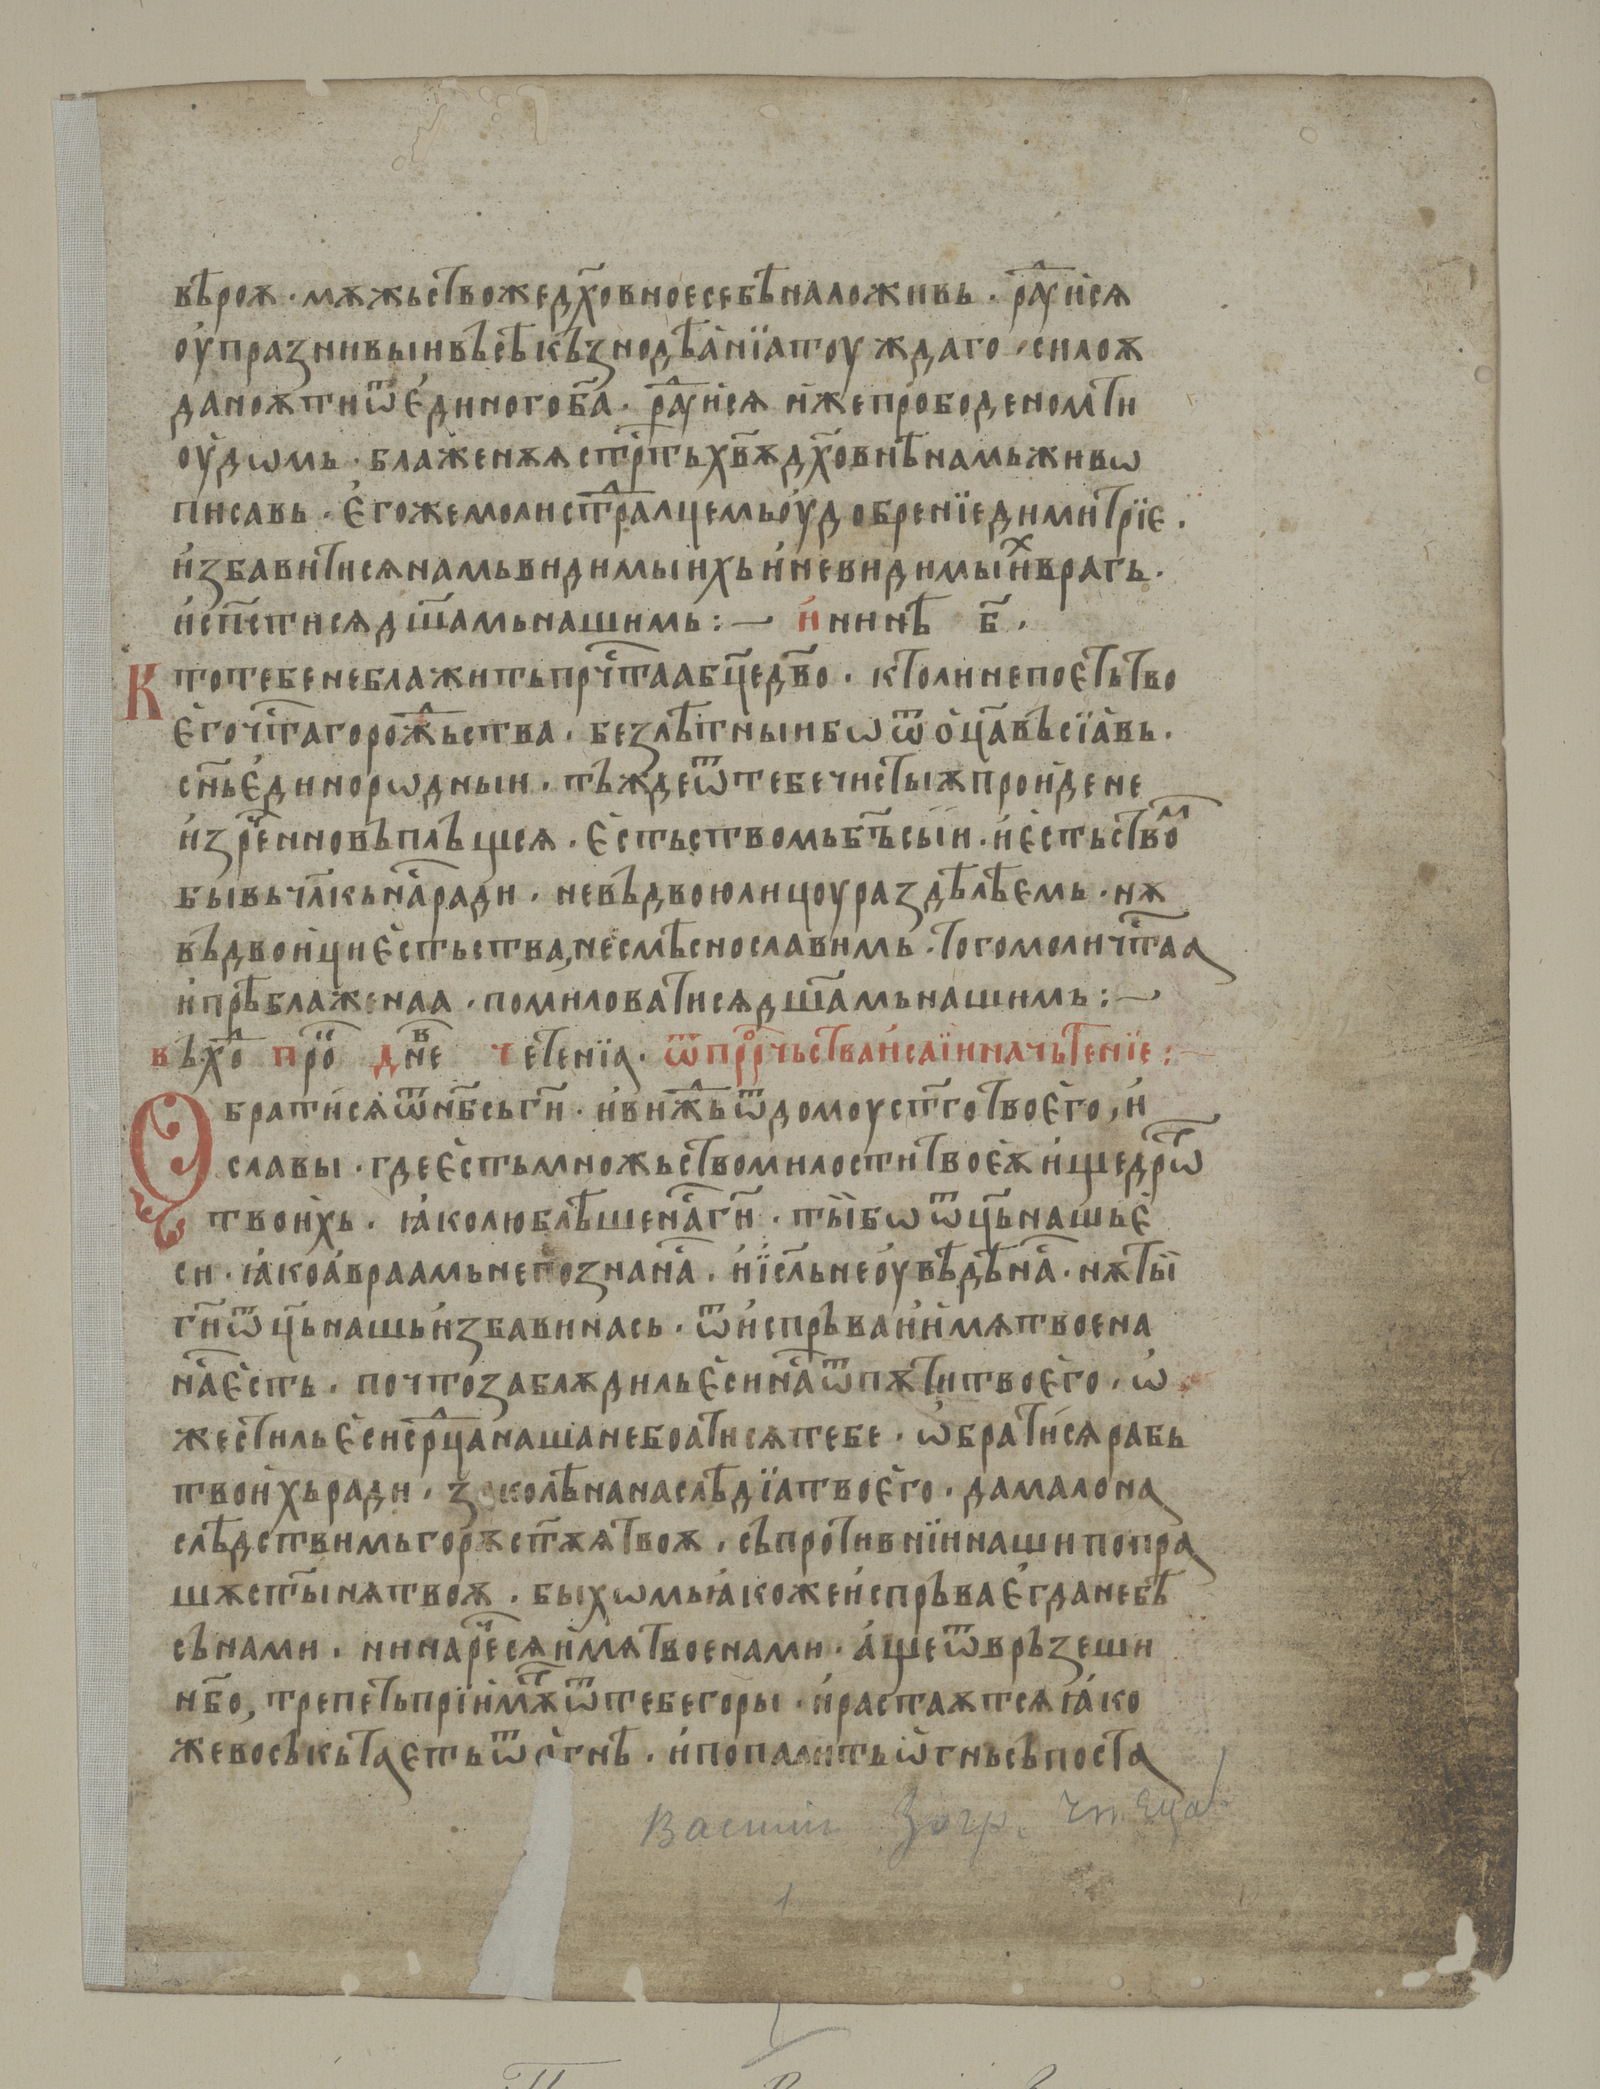 вѣроѫ · мѫжьство же дх҃овное себѣ наложивь · рⷣаꙋи́сѧ
оу҆празнивыи въсѣ къзнодѣа҆нїа тоуждаго · силоѫ
даноѫ ти ѿ є҆диного б҃а · рⷣаꙋи́сѧ и҆же прободеномѫ ти
оу҆дѡмь · блаженѫѧ стрⷭ҇ть хв҃ѫ дх҃овнѣ намь живѡ
писавь · є҆гоже моли стрⷣалцемь оу҆добренїе димитрїє ·
и҆збавитисѧ намь видимыихь и҆ невидимыиⷯ врагь ·
и҆ сп҃стисѧ дш҃амь нашимь : — и҆ нинѣ б҃ ·
Кто тебе не блажить прчⷭ҇таа бц҃е дв҃о · кто ли не поєть тво
є҆го чⷭ҇таго рожⷣьства · безлѣтныи бѡ ѿ ѻ҆ц҃а въсїа҆вь ·
сн҃ь є҆динорѡдныи · тъжде ѿ тебе чистыѫ проиде не
и҆зреⷱ҇нно въпльщсѧ · є҆стьством б҃ъ сыи · и҆ є҆стьствоⷨ
бывь чл҃кь наⷭ҇ ради · не въ двою лицоу раздѣлѣємь · нѫ
въ двоици є҆стьства, не смѣсно славимь · того моли чⷭ҇таа
и҆ прѣблаженаа · помиловатисѧ дш҃амь нашимь : —
въ хоⷣ прⷪ҇ дн҃ве четенїа · ѿ прⷪ҇рчьства и҆саїи начьтенїе : —
Обратисѧ ѿ нб҃сь г҃и · и҆ вижⷣь ѿ домоу ст҃го твоє҆го, и҆
славы · где є҆сть множьство милости твоєѫ и҆ щедрѡⷮ
твоихь · ꙗ҆ко люблѣше наⷭ҇ г҃и · ты бѡ ѿц҃ь нашь є҆
си · ꙗ҆ко а҆враамь не позна наⷭ҇ · и҆ їсл҃ь не оу҆вѣдѣ наⷭ҇ · нѫ ты
г҃и ѿц҃ь нашь и҆збави нась · ѿ и҆спръва и҆ имѧ твое на
наⷭ҇ є҆сть · почто заблѫдиль є҆си наⷭ҇ ѿ пѫти твоє҆го · ѡ҆
жестиль є҆си срⷣца наша не боатисѧ тебе · ѡ҆братисѧ рабь
твоихь ради · колѣна наслѣдїа твоє҆го · да мало на
слѣдствимь горѫ ст҃ѫѧ твоѫ · съпротивнїи наши попра
шѫ ст҃ынѧ твоѫ · быхѡмь ꙗ҆коже и҆спръва є҆гда не бѣ
съ нами · ни нареⷱ҇сѧ имѧ твое нами · а҆ще ѿвръзеши
нб҃о, трепеть прїимѫⷮ ѿ тебе горы · и҆ растаѫтсѧ ꙗ҆ко
же воськь таєть ѿ ѻ҆гнѣ · и҆ попалить ѡ҆гнь съпоста